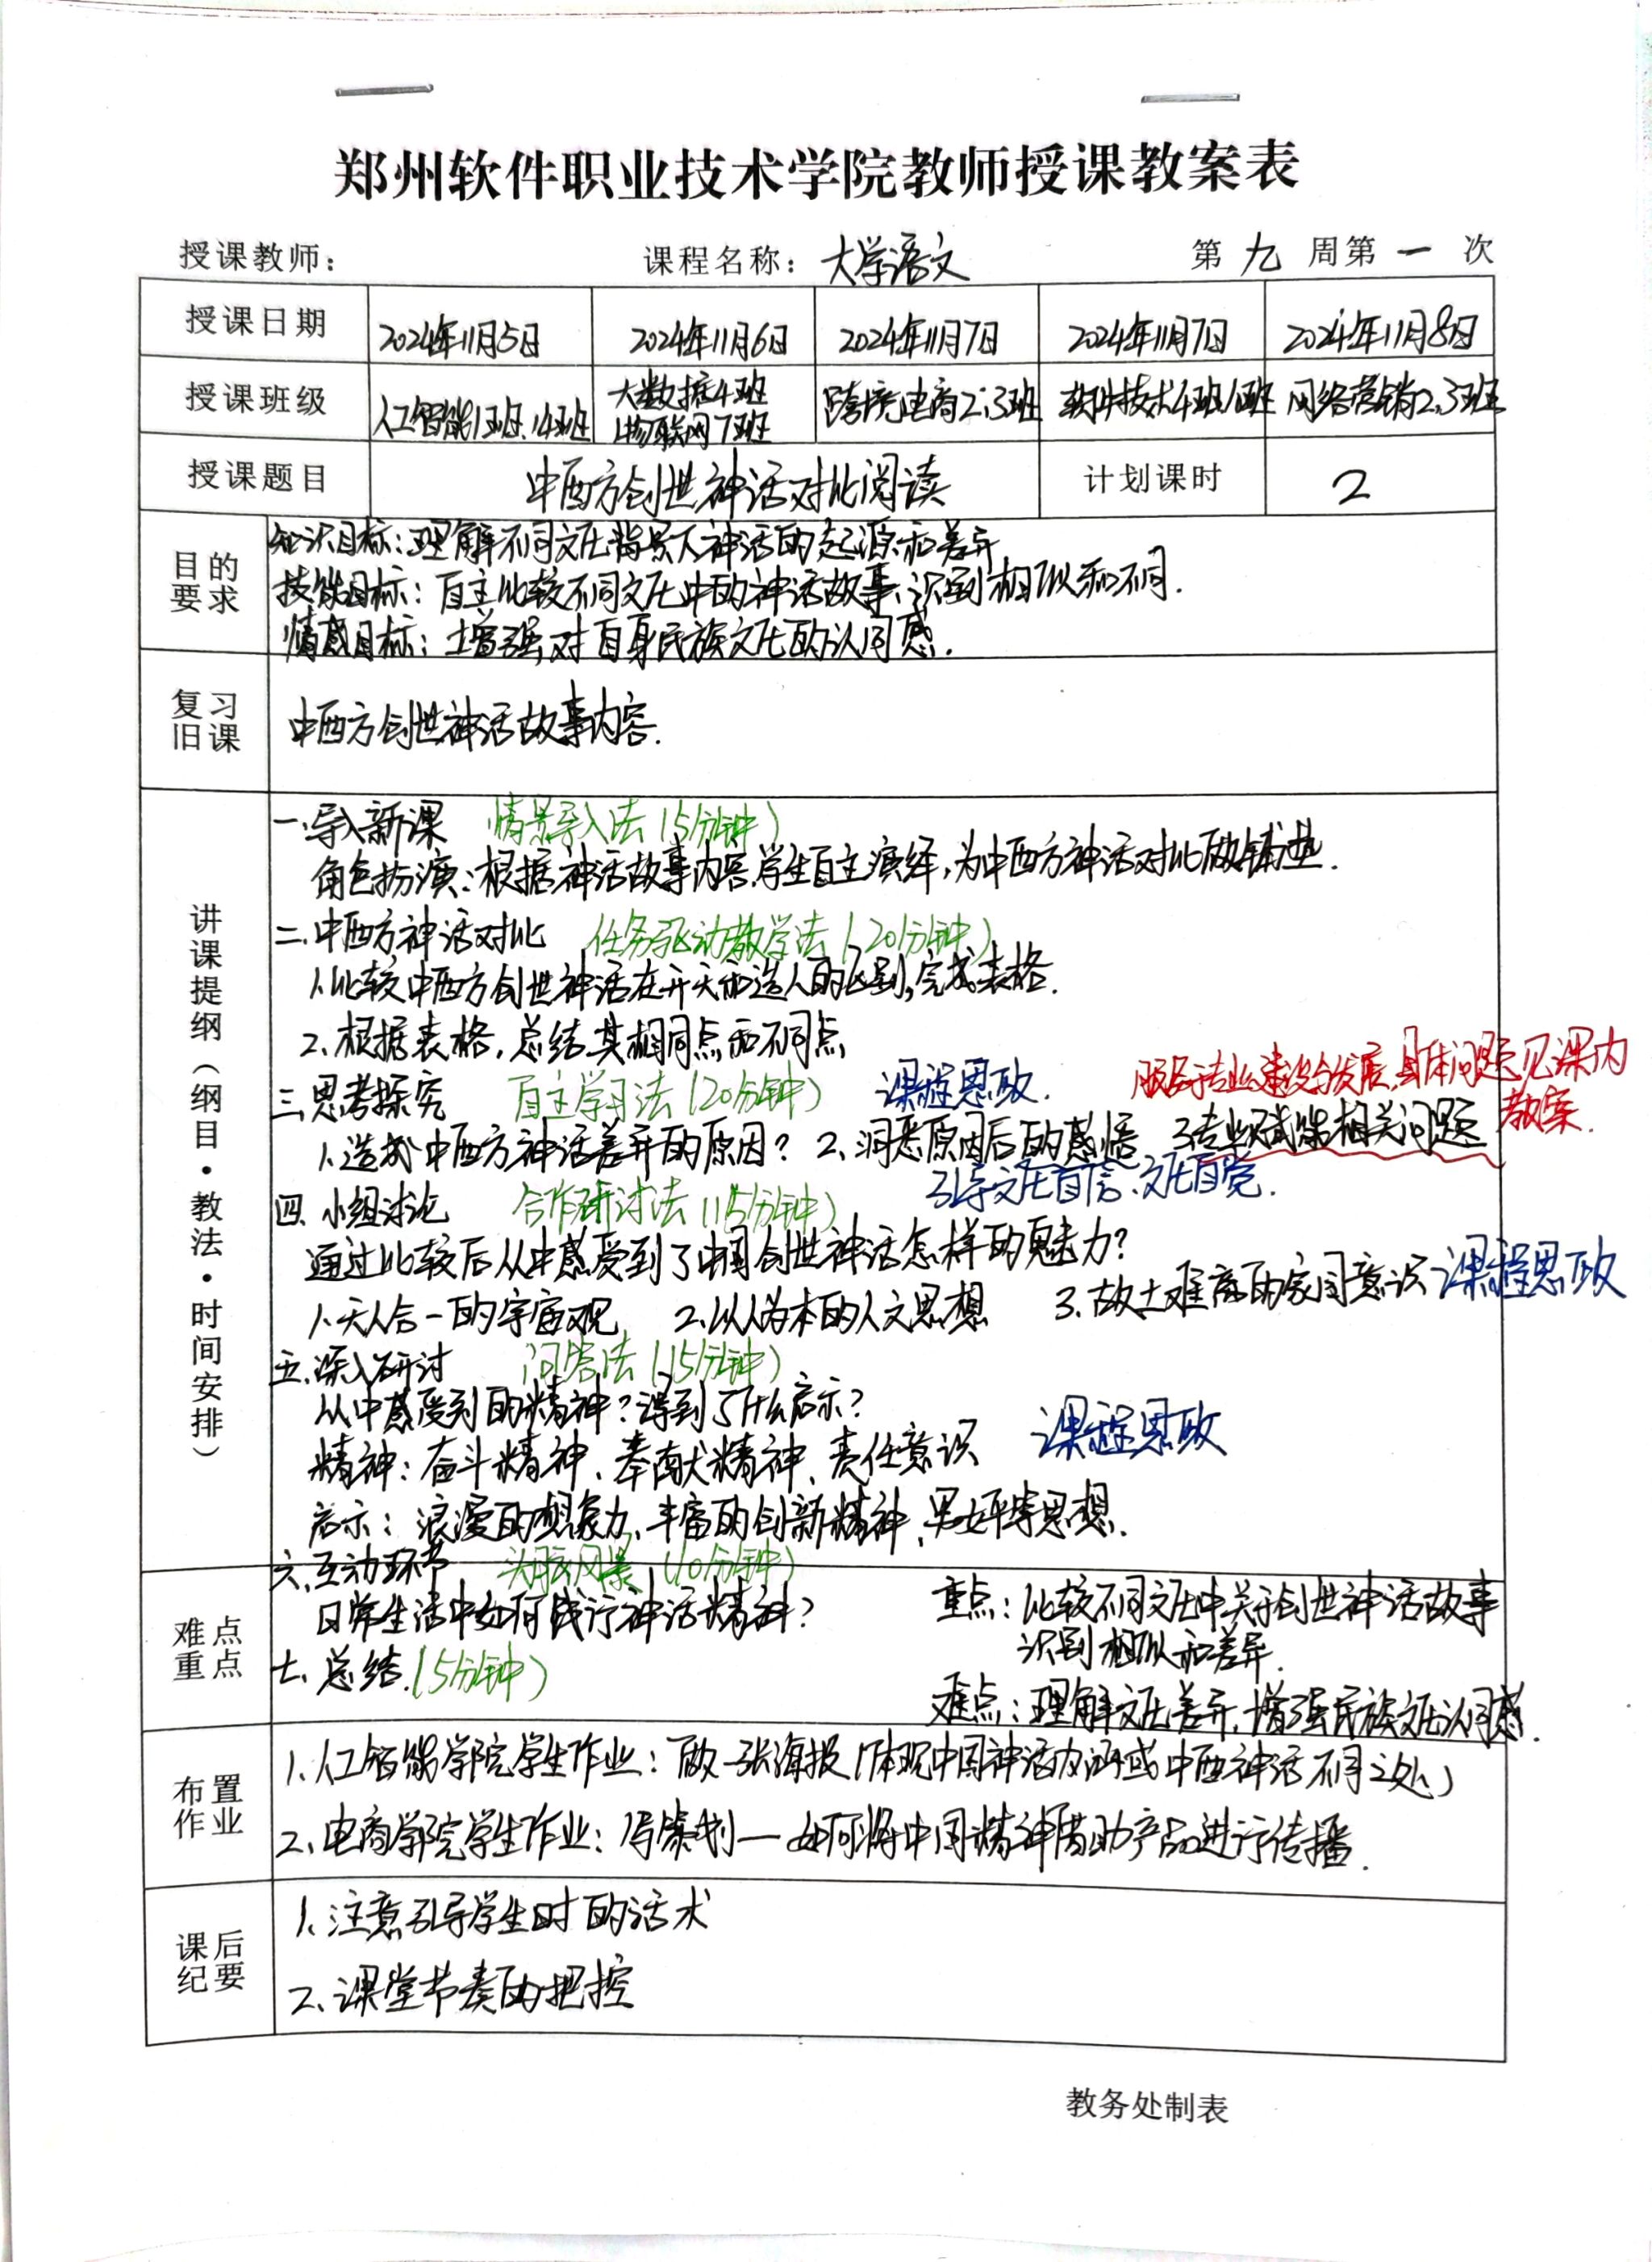 郑州软件职业技术学院教师授课教案表
授课教师： 课程名称：大学语文 第 九 周第 一 次
授课日期 2024年11月5日 2024年11月6日 2024年11月7日 2024年11月7日 2024年11月8日
授课班级 人工智能1班、14班 大数据4班 物联网7班 跨境电商2、3班 软件技术4班1班 网络营销2、3班
授课题目 中西方创世神话对比阅读 计划课时 2
目的要求
知识目标：理解不同文化背景下神话的起源和差异
技能目标：自主比较不同文化中的神话故事、识到相似和不同.
情感目标：增强对自身民族文化的认同感.
复习旧课
中西方创世神话故事内容.
讲课提纲（纲目·教法·时间安排）
一.导入新课 情景导入法（5分钟）
角色扮演：根据神话故事内容,学生自主演绎，为中西方神话对比做铺垫.
二.中西方神话对比 任务驱动教学法（20分钟）
1.比较中西方创世神话在开天和造人的区别，完成表格.
2.根据表格，总结其相同点和不同点
三.思考探究 自主学习法（20分钟） 课程思政. 服务于专业建设与发展,具体问题见课内教案.
1.造成中西方神话差异的原因？ 2.洞悉原因后的感悟 3.专业赋能相关问题
引导文化自信、文化自觉.
四.小组讨论 合作研讨法（15分钟）
通过比较后从中感受到了中国创世神话怎样的魅力？
1.天人合一的宇宙观 2.以人为本的人文思想 3.故土难离的家国意识 课程思政
五.深入研讨 问答法（15分钟）
从中感受到的精神？得到了什么启示？
精神：奋斗精神、奉献精神、责任意识 课程思政
启示：浪漫的想象力、丰富的创新精神、男女平等思想.
六.互动环节 头脑风暴（10分钟）
日常生活中如何践行神话精神？
七.总结.（5分钟）
难点重点
重点：比较不同文化中关于创世神话故事
识到相似和差异.
难点：理解文化差异,增强民族文化认同感.
布置作业
1.人工智能学院学生作业：做一张海报（体现中国神话内涵或中西神话不同之处）
2.电商学院学生作业：写策划—如何将中国精神借助产品进行传播.
课后纪要
1.注意引导学生时的话术
2.课堂节奏的把控
教务处制表